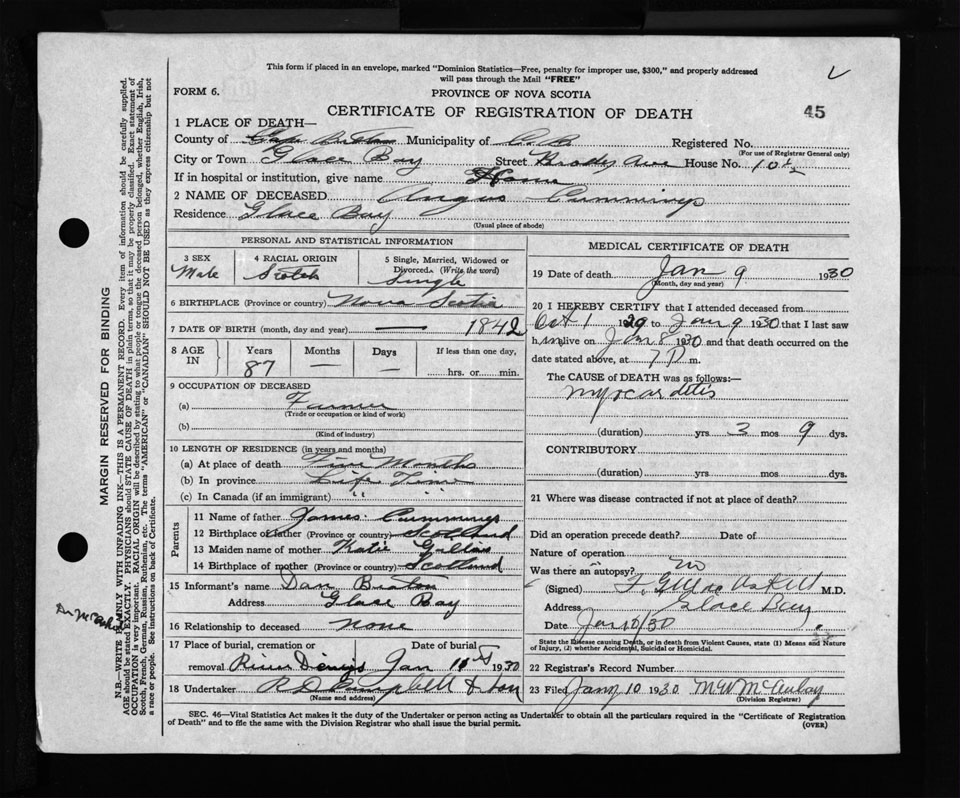 This form if placed in an envelope, marked "Dominion Statistics—Free, penalty for improper use, $300," and properly addressed
will pass through the Mail "FREE"
FORM 6.
PROVINCE OF NOVA SCOTIA
CERTIFICATE OF REGISTRATION OF DEATH
45
1 PLACE OF DEATH—
County of Cape Breton Municipality of C. B. Registered No.
(For use of Registrar General only)
City or Town Glace Bay Street Brodey Ave House No. 10½
If in hospital or institution, give name Home
2 NAME OF DECEASED Angus Cummings
Residence Glace Bay
(Usual place of abode)
PERSONAL AND STATISTICAL INFORMATION
3 SEX Male
4 RACIAL ORIGIN Scotch
5 Single, Married, Widowed or Divorced. (Write the word) Single
6 BIRTHPLACE (Province or country) Nova Scotia
7 DATE OF BIRTH (month, day and year) — 1842
8 AGE IN Years 87 Months — Days — If less than one day, hrs. or min.
9 OCCUPATION OF DECEASED
(a) Farmer
(Trade or occupation or kind of work)
(b)
(Kind of industry)
10 LENGTH OF RESIDENCE (in years and months)
(a) At place of death Five Months
(b) In province Life Time
(c) In Canada (if an immigrant) " "
Parents
11 Name of father James Cummings
12 Birthplace of father (Province or country) Scotland
13 Maiden name of mother Katie Gillis
14 Birthplace of mother (Province or country) Scotland
15 Informant's name Dan Buxton
Address Glace Bay
16 Relationship to deceased None
17 Place of burial, cremation or Date of burial
removal River Dennis Jan 11th 1930
18 Undertaker R D Campbell & Son
(Name and address)
MEDICAL CERTIFICATE OF DEATH
19 Date of death Jan 9 1930
(Month, day and year)
20 I HEREBY CERTIFY that I attended deceased from
Oct 1 1929 to Jan 9 1930 that I last saw
him alive on Jan 8 1930 and that death occurred on the
date stated above, at 7 P m.
The CAUSE of DEATH was as follows:—
myocarditis
(duration) yrs 3 mos 9 dys.
CONTRIBUTORY
(duration) yrs. mos. dys.
21 Where was disease contracted if not at place of death?
Did an operation precede death? Date of
Nature of operation
Was there an autopsy? no
(Signed) M.D.
Address Glace Bay
Date Jan 10/30
State the Disease causing Death, or in death from Violent Causes, state (1) Means and Nature
of Injury, (2) whether Accidental, Suicidal or Homicidal.
22 Registrar's Record Number
23 Filed Jany 10 1930 M W McAulay
(Division Registrar)
SEC. 46—Vital Statistics Act makes it the duty of the Undertaker or person acting as Undertaker to obtain all the particulars required in the "Certificate of Registration
of Death" and to file the same with the Division Registrar who shall issue the burial permit.
(OVER)
MARGIN RESERVED FOR BINDING
N.B.—WRITE PLAINLY WITH UNFADING INK—THIS IS A PERMANENT RECORD. Every item of information should be carefully supplied.
AGE should be stated EXACTLY. PHYSICIANS should STATE CAUSE OF DEATH in plain terms, so that it may be properly classified. Exact statement of
OCCUPATION is very important. RACIAL ORIGIN will be described by stating to what people or tongue the deceased person belonged, whether English, Irish,
Scotch, French, German, Russian, Ruthenian, etc. The terms "AMERICAN" or "CANADIAN" SHOULD NOT BE USED as they express citizenship but not
a race or people. See instructions on back of Certificate.